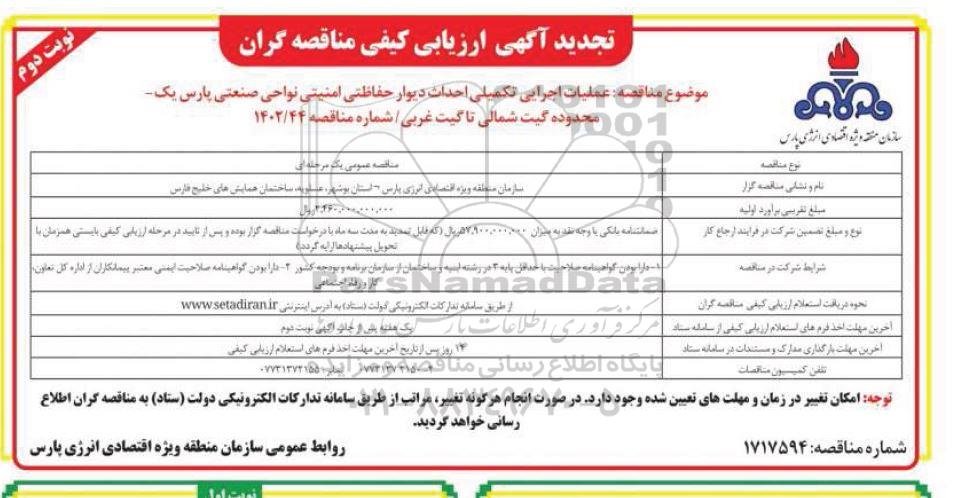 نوبت دوم
تجدید آگهی ارزیابی کیفی مناقصه گران
موضوع مناقصه: عملیات اجرایی تکمیلی احداث دیوار حفاظتی امنیتی نواحی صنعتی پارس یک -
محدوده گیت شمالی تا گیت غربی / شماره مناقصه ۱۴۰۲/۴۴
سازمان منطقه ویژه اقتصادی انرژی پارس
نوع مناقصه مناقصه عمومی یک مرحله ای
نام و نشانی مناقصه گزار سازمان منطقه ویژه اقتصادی انرژی پارس - استان بوشهر، عسلویه، ساختمان همایش های خلیج فارس
مبلغ تقریبی برآورد اولیه ۲،۴۶۰،۰۰۰،۰۰۰،۰۰۰ریال
نوع و مبلغ تضمین شرکت در فرایند ارجاع کار ضمانتنامه بانکی یا وجه نقد به میزان ۵۷،۹۰۰،۰۰۰،۰۰۰ریال (که قابل تمدید به مدت سه ماه با درخواست مناقصه گزار بوده و پس از تایید در مرحله ارزیابی کیفی بایستی همزمان با
تحویل پیشنهادها ارایه گردد.)
شرایط شرکت در مناقصه ۱- دارا بودن گواهینامه صلاحیت با حداقل پایه ۳ در رشته ابنیه و ساختمان از سازمان برنامه و بودجه کشور ۲- دارا بودن گواهینامه صلاحیت ایمنی معتبر پیمانکاران از اداره کل تعاون،
کار و رفاه اجتماعی
نحوه دریافت استعلام ارزیابی کیفی مناقصه گران از طریق سامانه تدارکات الکترونیکی دولت (ستاد) به آدرس اینترنتی www.setadiran.ir
آخرین مهلت اخذ فرم های استعلام ارزیابی کیفی از سامانه ستاد یک هفته پس از چاپ آگهی نوبت دوم
آخرین مهلت بارگذاری مدارک و مستندات در سامانه ستاد ۱۴ روز پس از تاریخ آخرین مهلت اخذ فرم های استعلام ارزیابی کیفی
تلفن کمیسیون مناقصات نمابر: ۰۷۷۳۱۳۷۲۱۵۵
توجه: امکان تغییر در زمان و مهلت های تعیین شده وجود دارد. در صورت انجام هرگونه تغییر، مراتب از طریق سامانه تدارکات الکترونیکی دولت (ستاد) به مناقصه گران اطلاع
رسانی خواهد گردید.
شماره مناقصه: ۱۷۱۷۵۹۴
روابط عمومی سازمان منطقه ویژه اقتصادی انرژی پارس
ParsNamadData
پایگاه اطلاع رسانی مناقصه و مزایده
نوبت اول